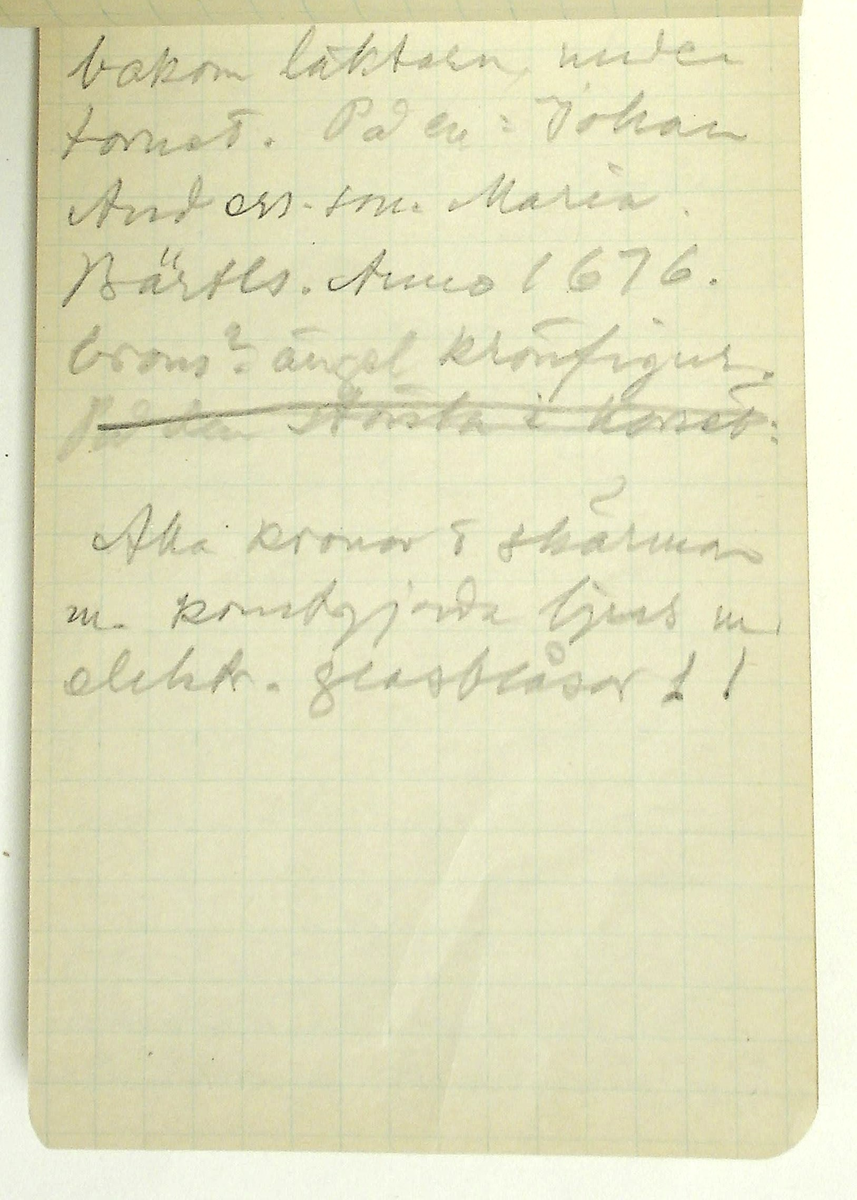 bakom läktaren, under
tornet. På en: Johan
Anders-son. Maria.
Bärtls. Anno 1676.
brons? ängel krönfigur.
På den största i koret:
Alla kronor o skärmar
m. konstgjorda ljus m.
elektr. glasblåsor !!